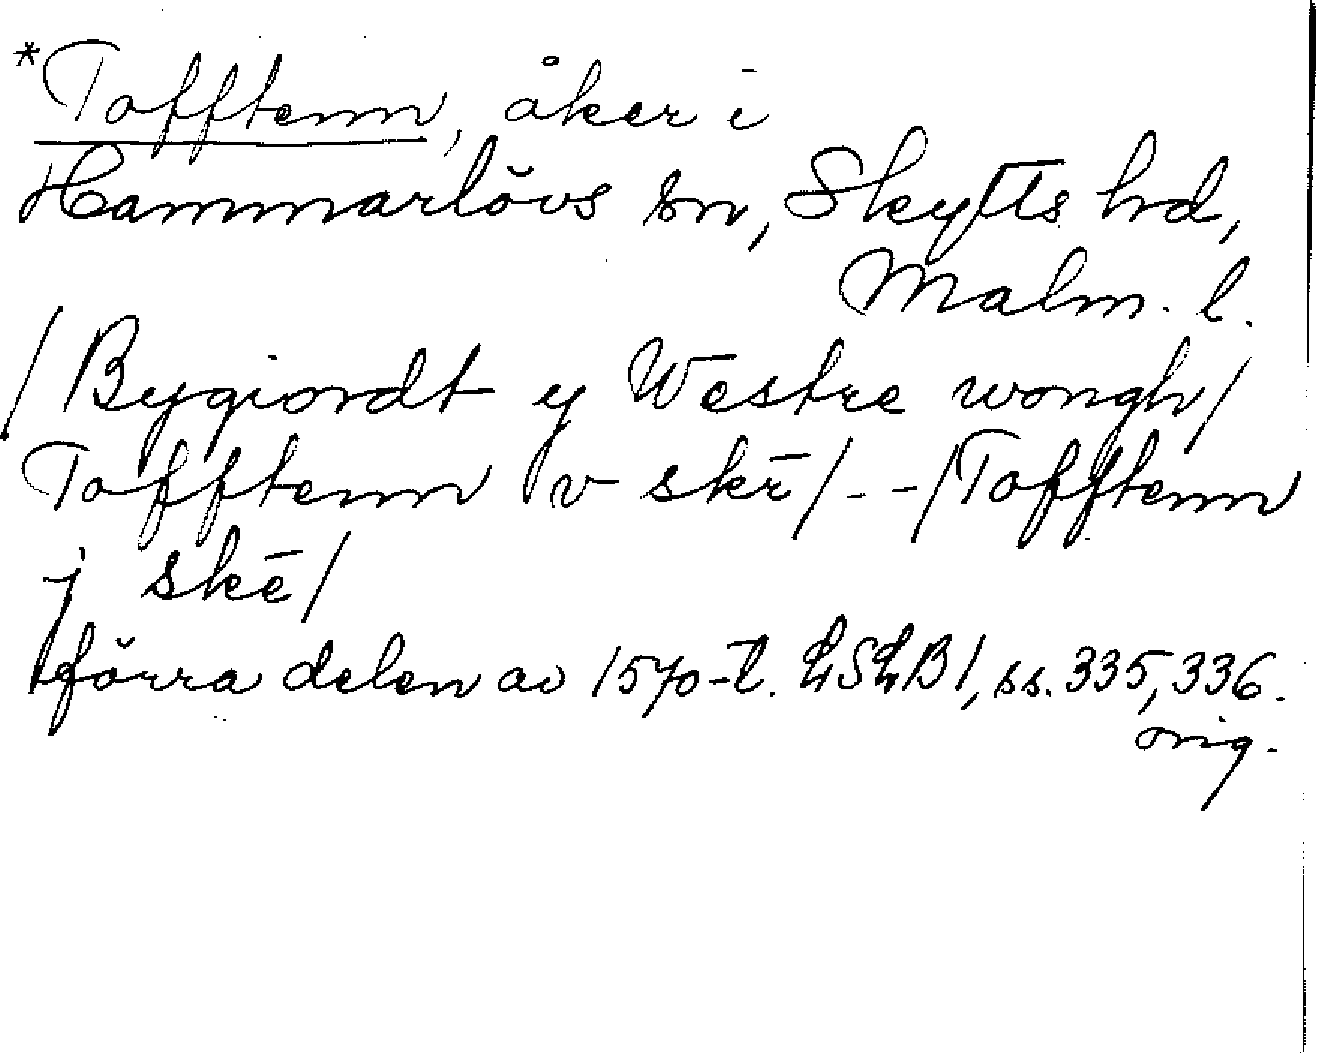 *Tofftenn, åker i
Hammarlövs sn, Skytts hd,
Malm. l.
/Bygiordt y Westre wongh/
Tofftenn v skē/ - -/Tofftenn
j skē/
förra delen av 1570-t. LSLB1, ss. 335, 336.
orig.